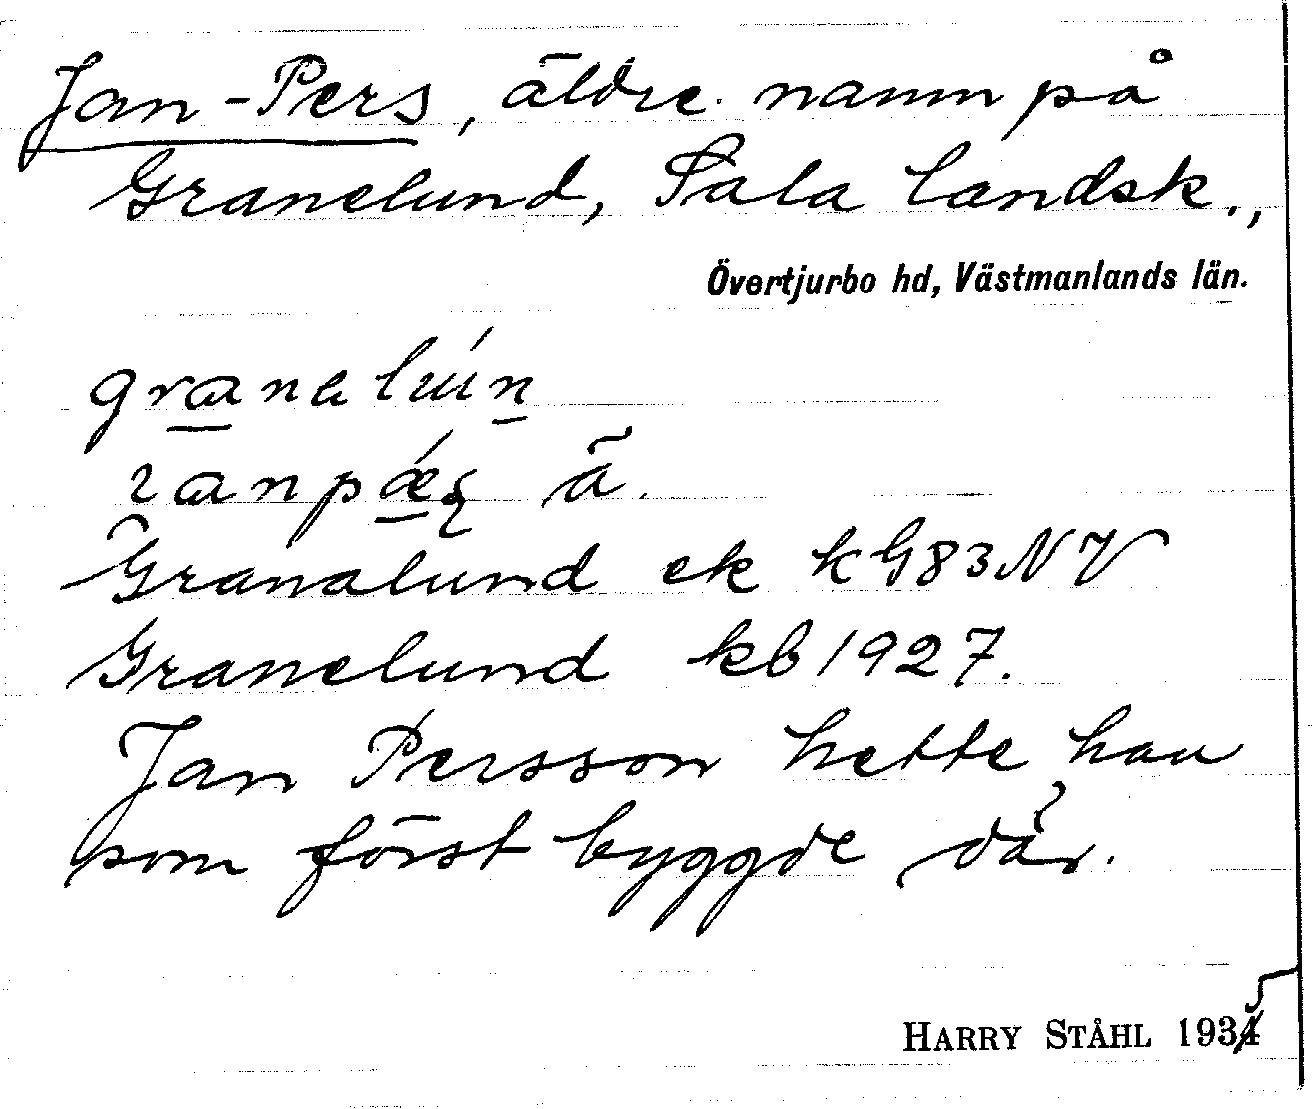 Jan-Pers, äldre namn på
Granelund, Sala landsk.,
Övertjurbo hd, Västmanlands län.
ä.
Granalund ek kG83NV
Granelund kb 1927.
Jan Persson hette han
som först byggde där.
HARRY STÅHL 1935